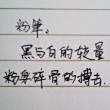 粉笔。
黑与白的较量
粉柒碎骨的搏击